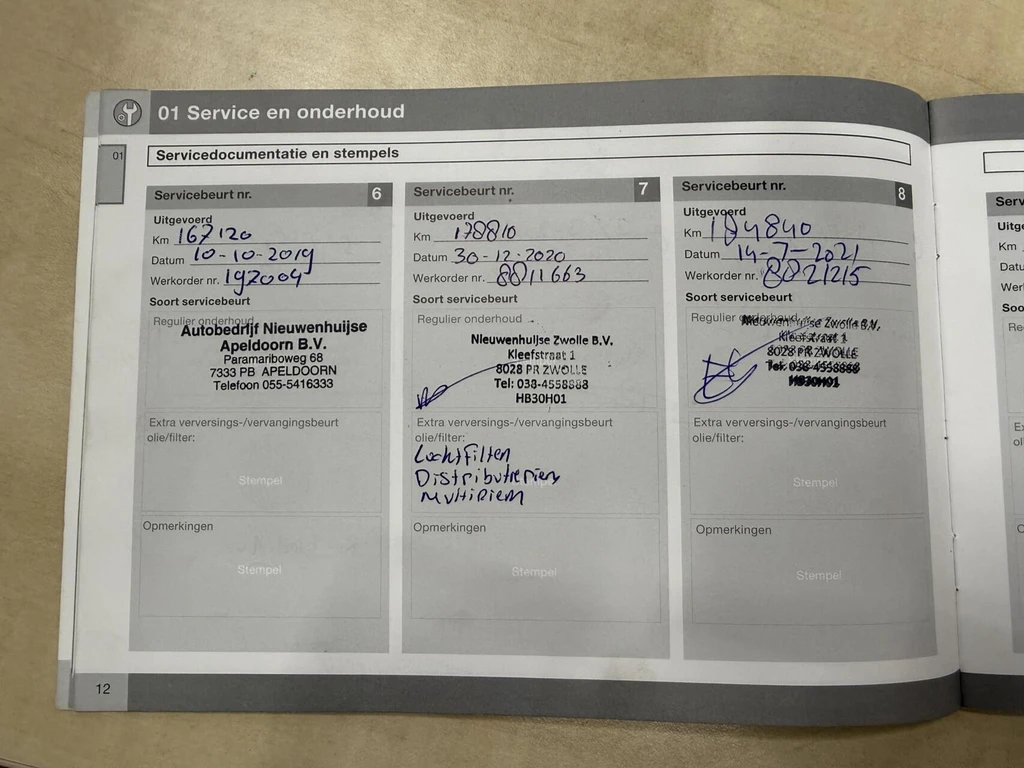 01 Service en onderhoud
01
Servicedocumentatie en stempels
Servicebeurt nr. 6
Uitgevoerd
Km 167120
Datum 10-10-2019
Werkorder nr. 192004
Soort servicebeurt
Regulier onderhoud
Autobedrijf Nieuwenhuijse
Apeldoorn B.V.
Paramariboweg 68
7333 PB APELDOORN
Telefoon 055-5416333
Extra verversings-/vervangingsbeurt
olie/filter:
Stempel
Opmerkingen
Stempel
Servicebeurt nr. 7
Uitgevoerd
Km 178810
Datum 30-12-2020
Werkorder nr. 8811663
Soort servicebeurt
Regulier onderhoud
Nieuwenhuijse Zwolle B.V.
Kleefstraat 1
8028 PR ZWOLLE
Tel: 038-4558888
HB30H01
Extra verversings-/vervangingsbeurt
olie/filter:
Luchtfilter
Distributieriem
Multiriem
Opmerkingen
Stempel
Servicebeurt nr. 8
Uitgevoerd
Km 184840
Datum 14-7-2021
Werkorder nr. 8821215
Soort servicebeurt
Regulier onderhoud
Nieuwenhuijse Zwolle B.V.
Kleefstraat 1
8028 PR ZWOLLE
Tel: 038-4558888
HB30H01
Extra verversings-/vervangingsbeurt
olie/filter:
Stempel
Opmerkingen
Stempel
12
Serv
Uitge
Km
Datu
Wer
Soo